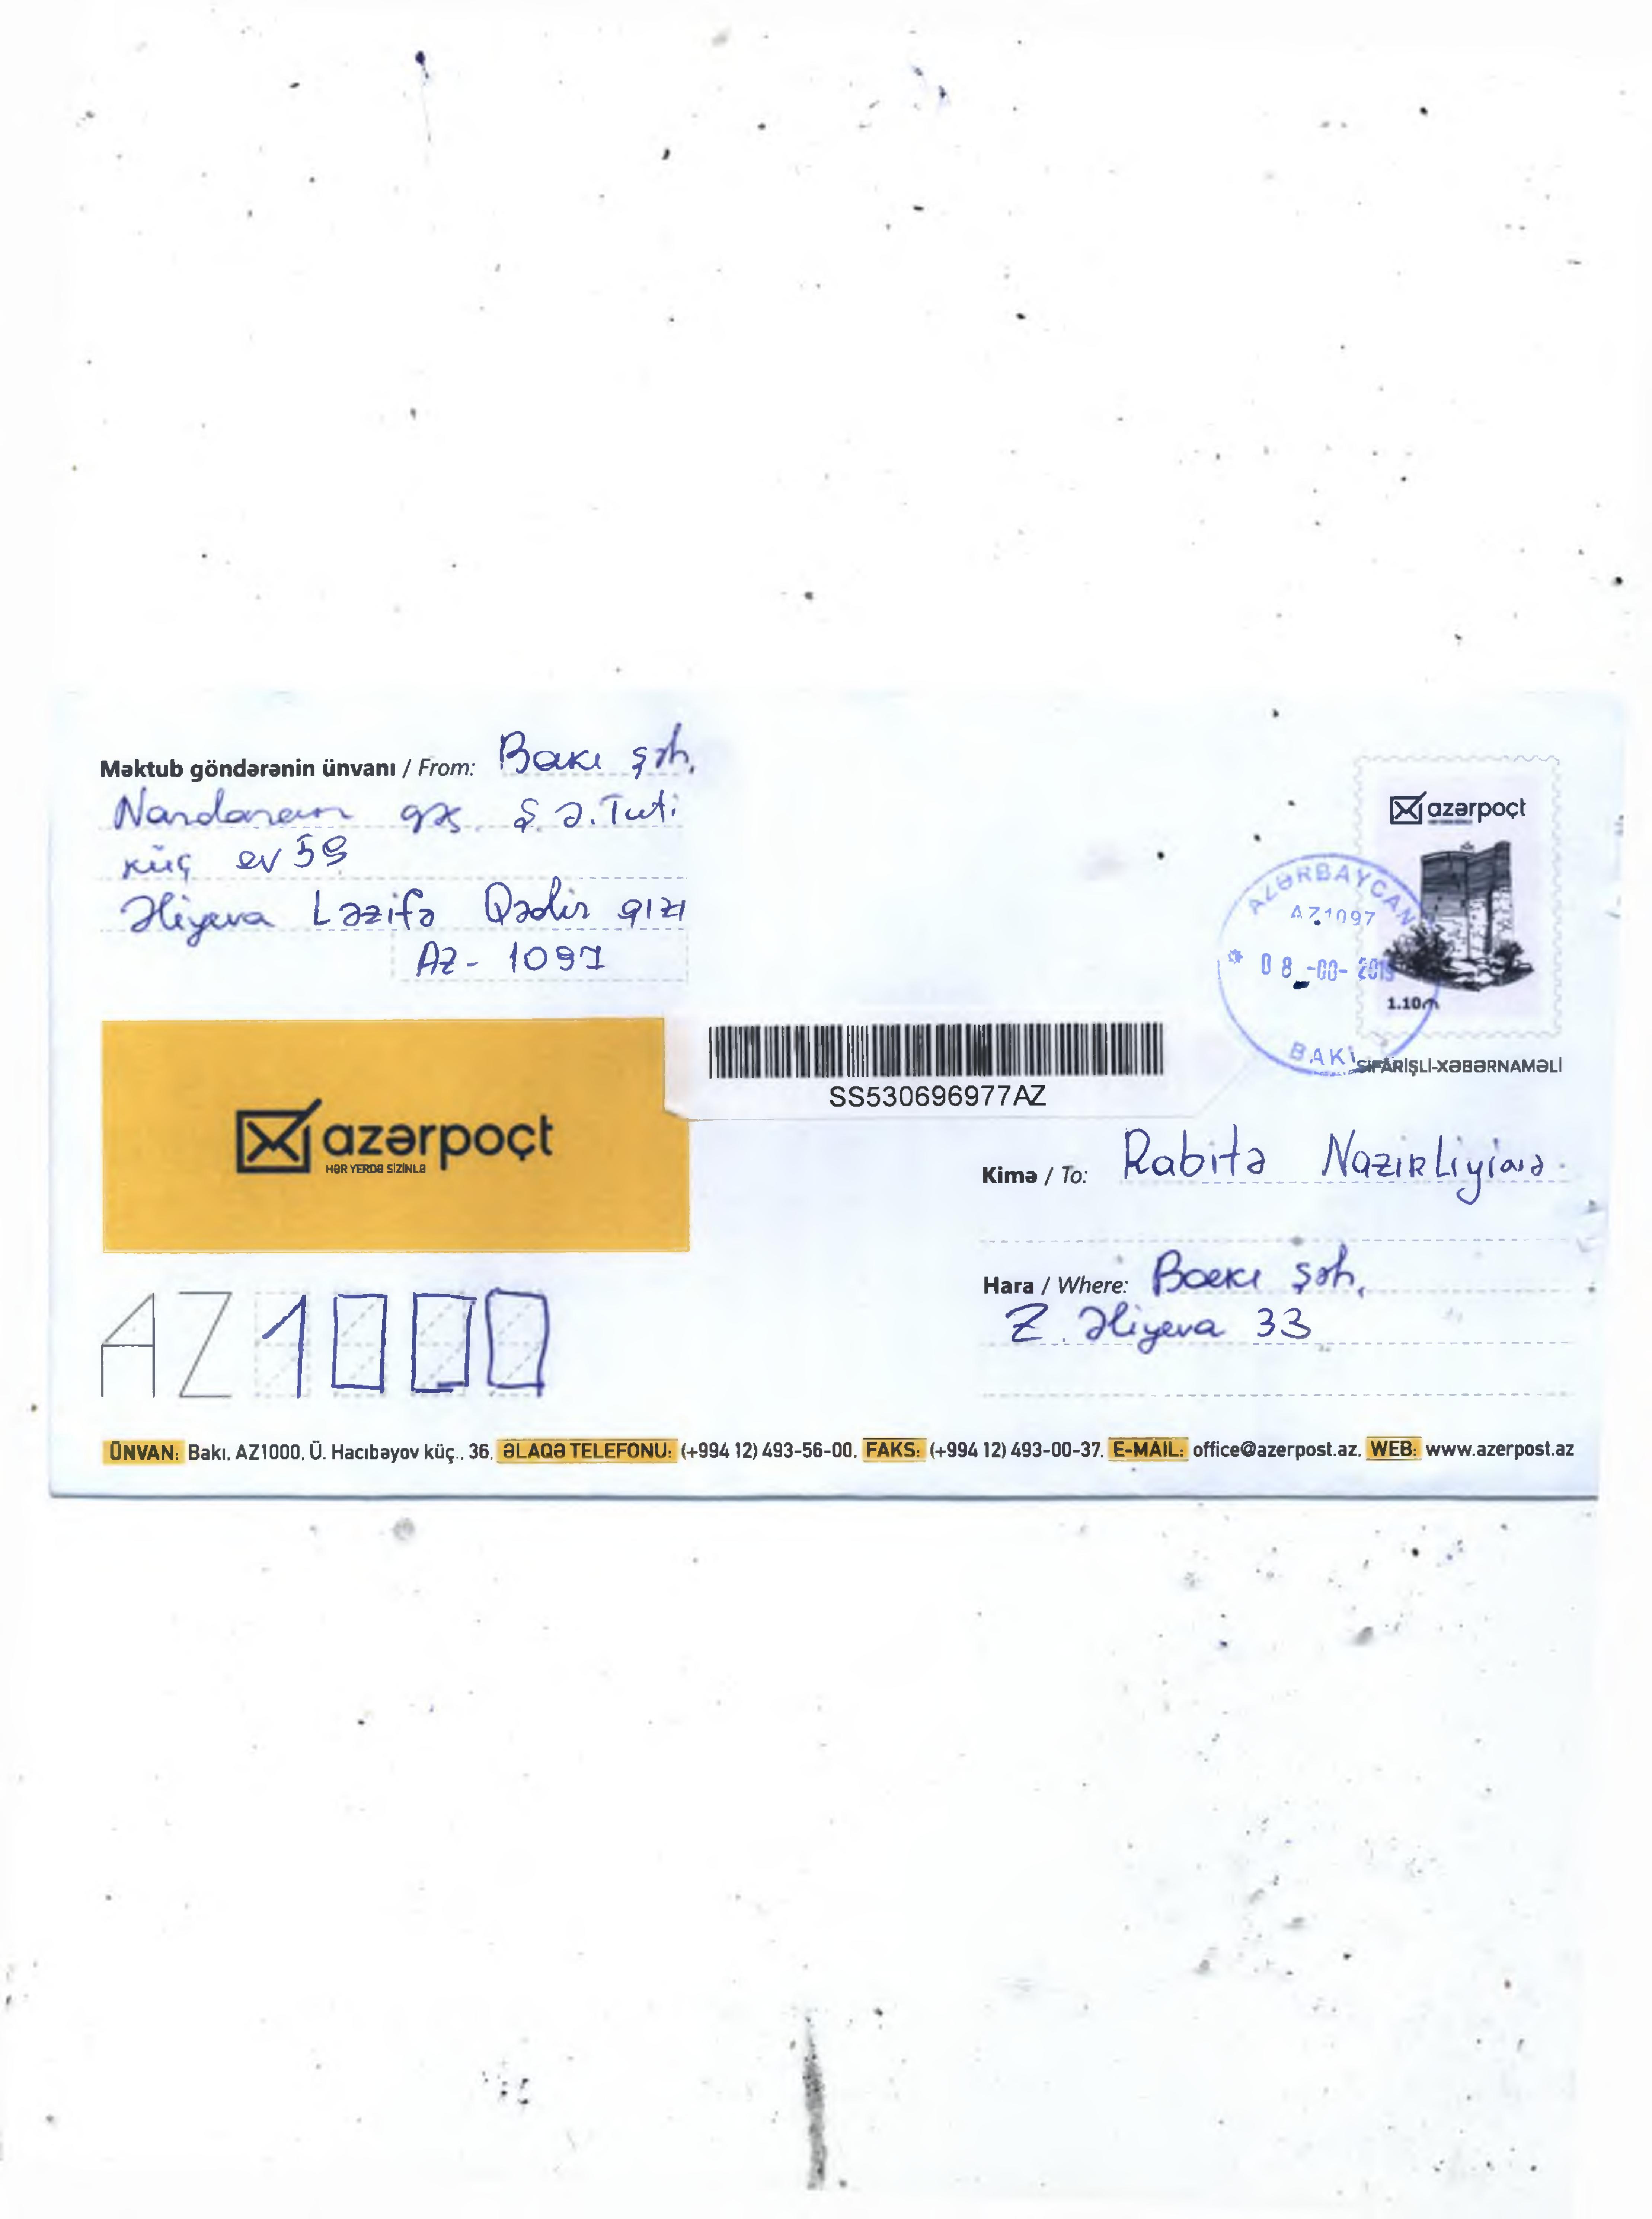 Məktub göndərənin ünvanı / From: Bakı şəh.
Nardaran qəs. Ş. Ə. Tuti
küç ev 59
Əliyeva Ləzifə Qədir qızı
Az- 1097
azərpoçt
AZƏRBAYCAN
AZ1097
08 -00- 2019
BAKI
1.10₼
SİFARİŞLİ-XƏBƏRNAMƏLİ
SS530696977AZ
azərpoçt
HƏR YERDƏ SİZİNLƏ
Kimə / To: Rabitə Nazirliyinə
Hara / Where: Bakı şəh.
Z. Əliyeva 33
AZ1000
ÜNVAN: Bakı, AZ1000, Ü. Hacıbəyov küç., 36, ƏLAQƏ TELEFONU: (+994 12) 493-56-00, FAKS: (+994 12) 493-00-37, E-MAIL: office@azerpost.az, WEB: www.azerpost.az